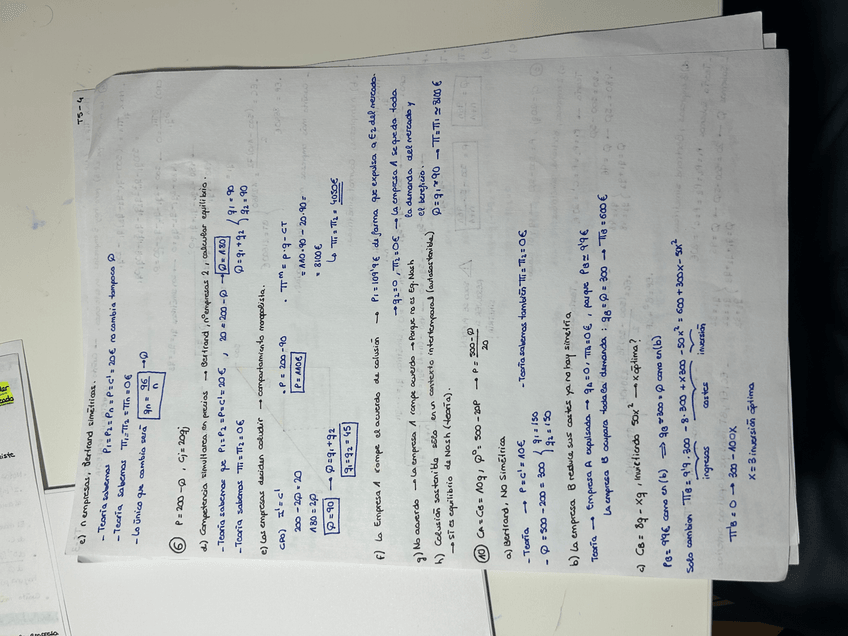 T5-4
c) n empresas, Bertrand simétricas.
- Teoría sabemos P1=P2=Pn=P=C'=20€ no cambia tampoco Q
- Teoría sabemos π1=π2=πn=0€
- Lo único que cambia será qn = 96/n → Q
⑥ P=200-Q, Cj=20qj
d) Competencia simultánea en precios → Bertrand, nº empresas 2, calcular equilibrio.
- Teoría sabemos que P1=P2=P=C'=20€, 20=200-Q → Q=180
- Teoría sabemos π1=π2=0€
Q=q1+q2 { q1=90
q2=90
e) Las empresas deciden coludir → comportamiento monopolista.
CPO) I'=C'
200-2Q=20
180=2Q
Q=90 → Q=q1+q2
q1=q2=45
· P=200-90
P=110€
· πm = p·q-CT
= 110·90-20·90=
= 8100€
↳ π1=π2=4050€
f) La Empresa 1 rompe el acuerdo de colusión → P1=109'9€ de forma que expulsa a E2 del mercado.
→ q2=0, π2=0€ → La empresa 1 se queda toda
la demanda del mercado y
el beneficio.
Q=q1≈90 → π=π1≃8100€
g) No acuerdo → La empresa 1 rompe acuerdo → Porque no es Eq. Nash
h) Colusión sostenible sólo en un contexto intertemporal (autosostenible)
→ Sí es equilibrio de Nash (teoría).
⑩ CA=CB=10q, QD=500-20P → P=500-Q/20
a) Bertrand, NO Simétrica
- Teoría → P=C'=10€
- Teoría sabemos también π1=π2=0€
- Q=500-200=300 { q1=150
q2=150
b) La empresa B reduce sus costes ya no hay simetría
Teoría → Empresa A expulsada → qA=0, πA=0€, porque PB≃9'9€
La empresa B acapara toda la demanda: qB=Q=300 → πB=600€
c) CB=8q-xq, invirtiendo 50x² → x óptima?
PB=9'9€ como en (b) → qB≈300=Q como en (b)
Solo cambian πB=9'9·300-8·300+x300-50x²=600+300x-50x²
ingresos costes inversión
π'B=0 → 300-100x
x=3 inversión óptima